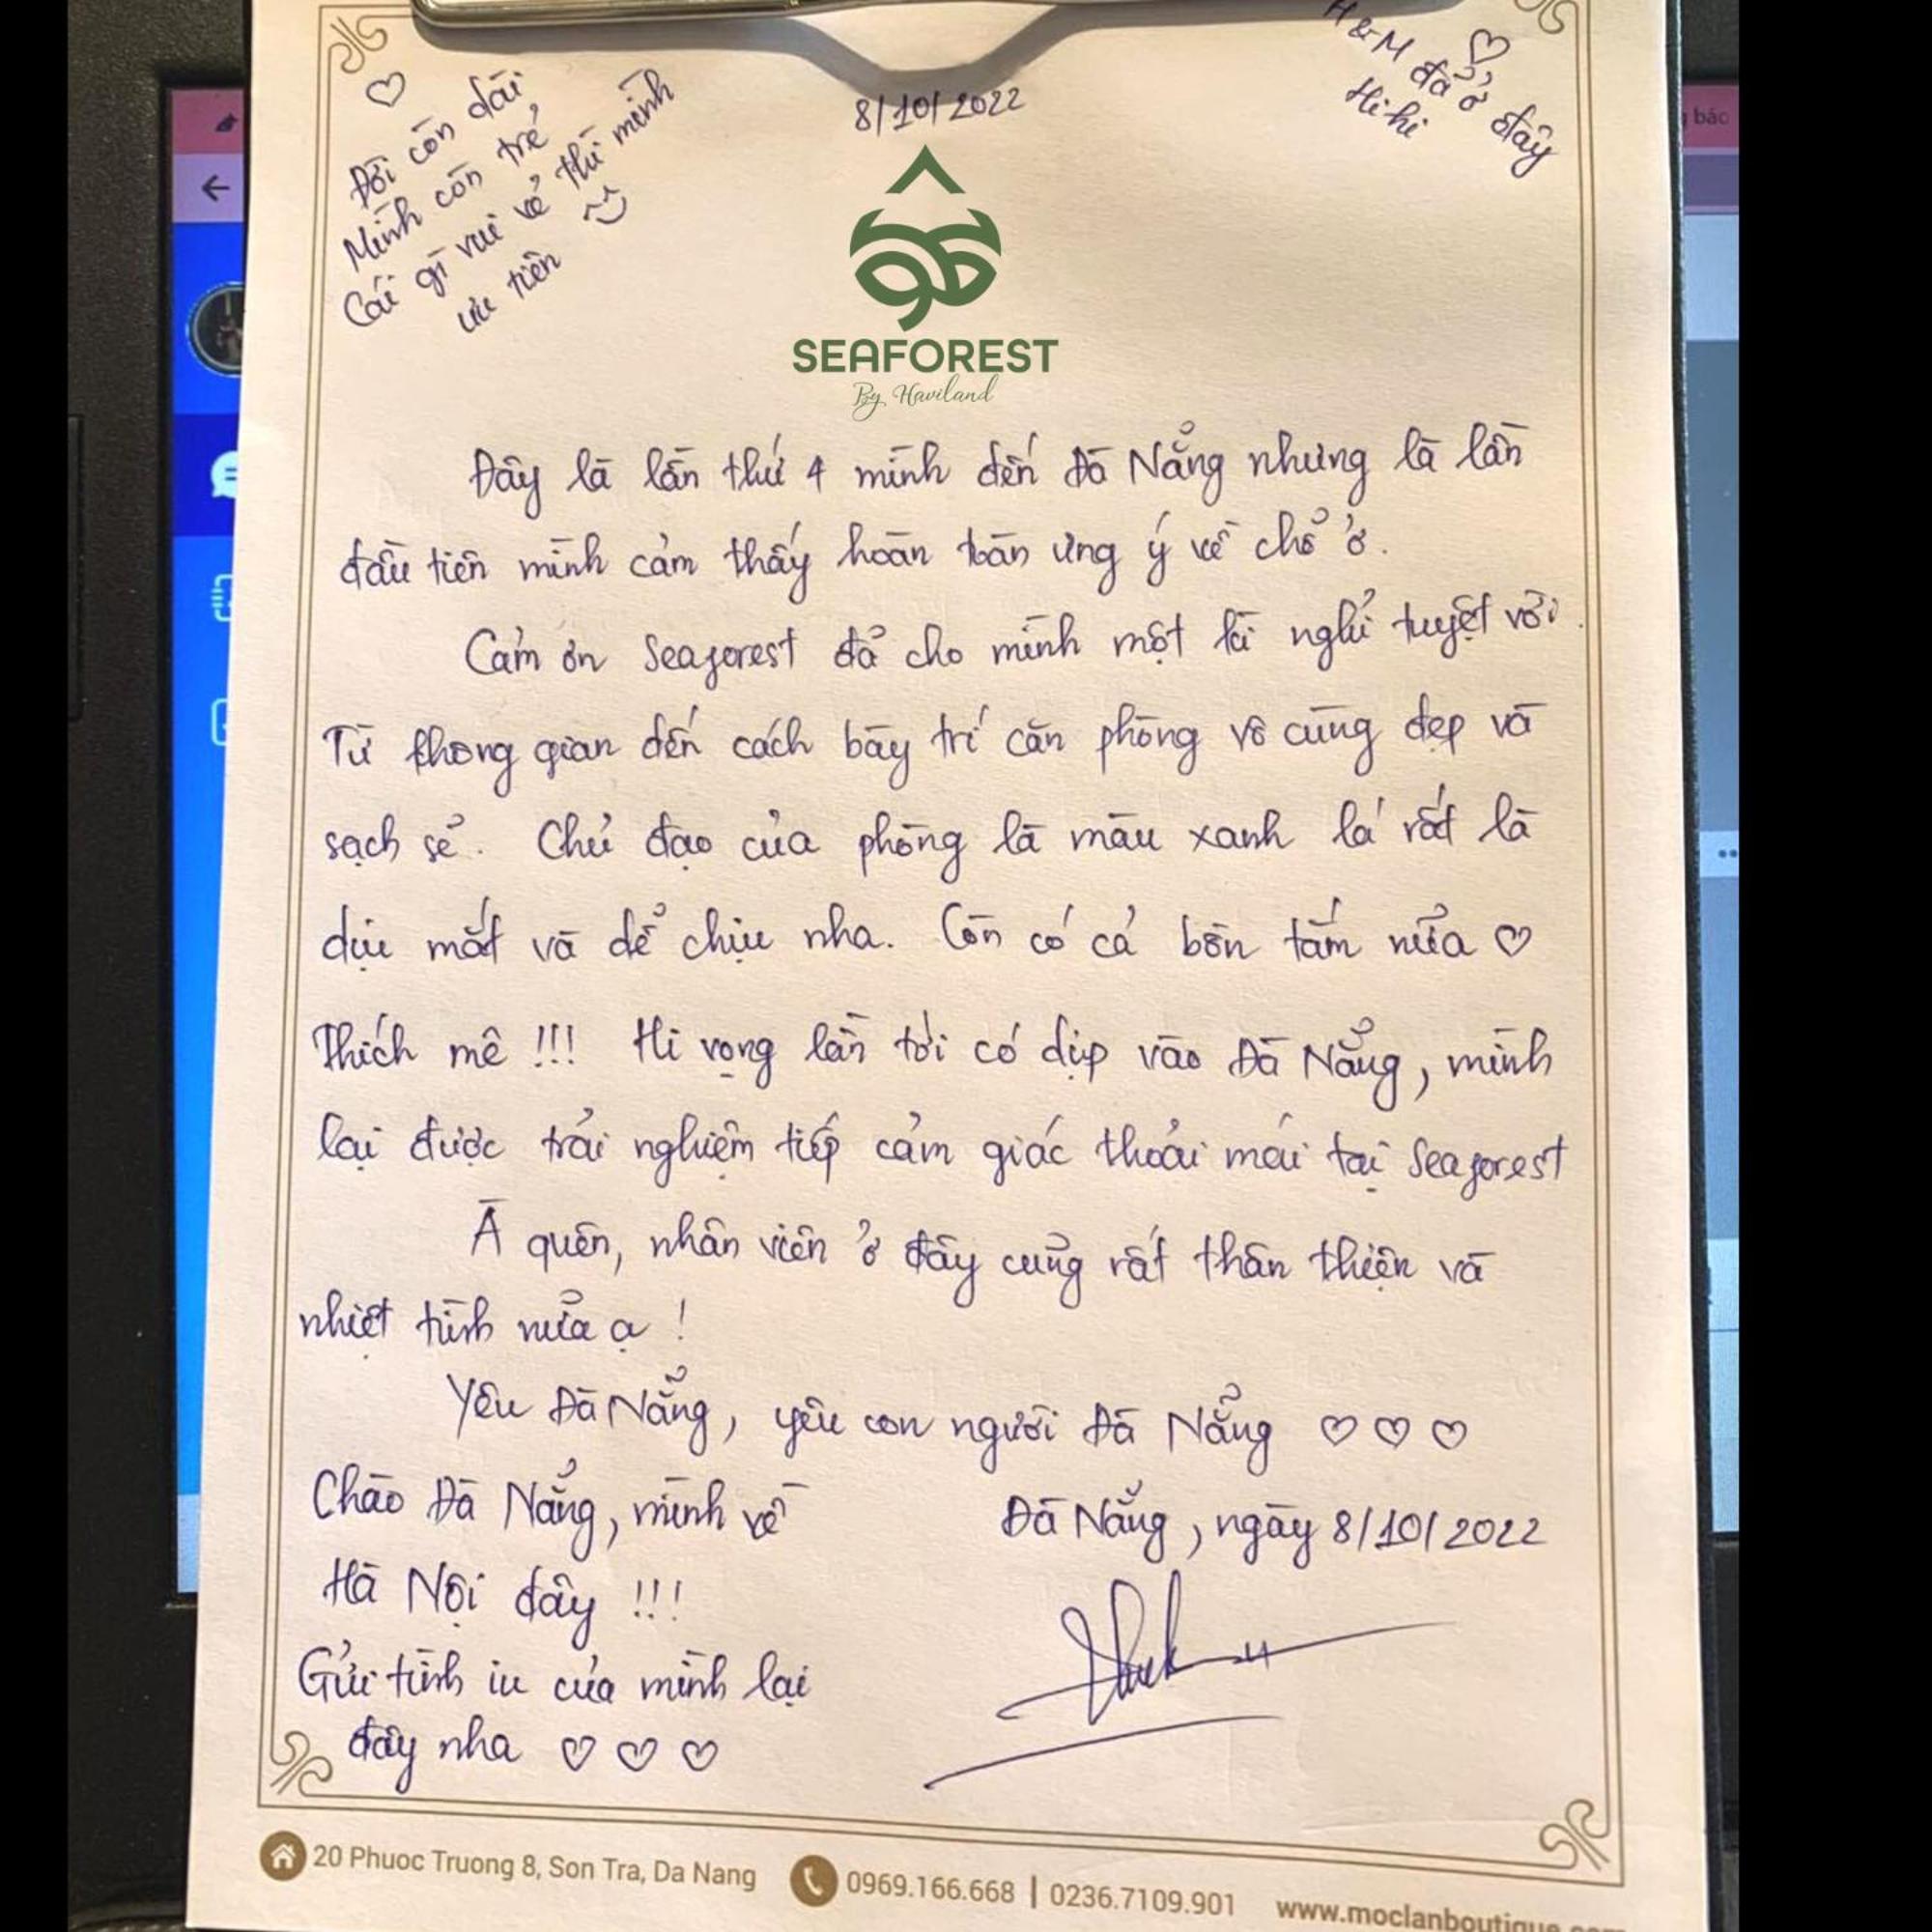 Đời còn dài
Mình còn trẻ
Cái gì vui vẻ thì mình
ưu tiên
8/10/2022
H & M đã ở đây
Hi hi
SEAFOREST
By Haviland
Đây là lần thứ 4 mình đến Đà Nẵng nhưng là lần
đầu tiên mình cảm thấy hoàn toàn ưng ý về chỗ ở.
Cảm ơn Seaforest đã cho mình một kì nghỉ tuyệt vời.
Từ không gian đến cách bày trí căn phòng vô cùng đẹp và
sạch sẽ. Chủ đạo của phòng là màu xanh lá rất là
dịu mắt và dễ chịu nha. Còn có cả bồn tắm nữa
Thích mê !!! Hi vọng lần tới có dịp vào Đà Nẵng, mình
lại được trải nghiệm tiếp cảm giác thoải mái tại Seaforest
À quên, nhân viên ở đây cũng rất thân thiện và
nhiệt tình nữa ạ !
Yêu Đà Nẵng, yêu con người Đà Nẵng
Chào Đà Nẵng, mình về
Hà Nội đây !!!
Gửi tình iu của mình lại
đây nha
Đà Nẵng, ngày 8/10/2022
20 Phuoc Truong 8, Son Tra, Da Nang
0969.166.668 | 0236.7109.901
www.moclanboutique.com
g báo